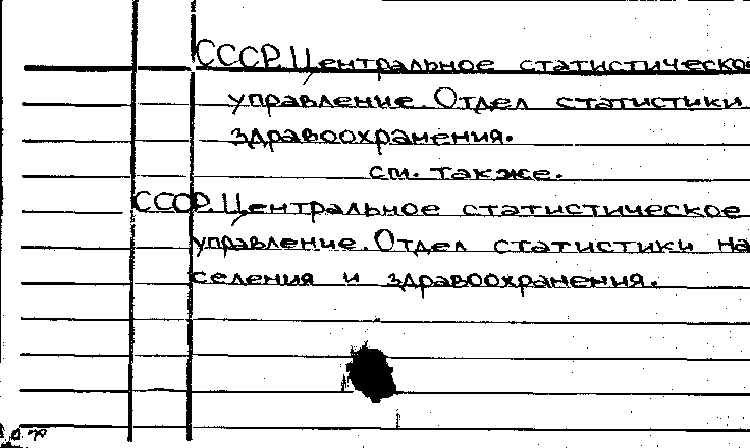 СССР. Центральное статистическо
управление. Отдел статистики
здравоохранения.
см. также.
СССР. Центральное статистическое
управление. Отдел статистики на
селения и здравоохранения.